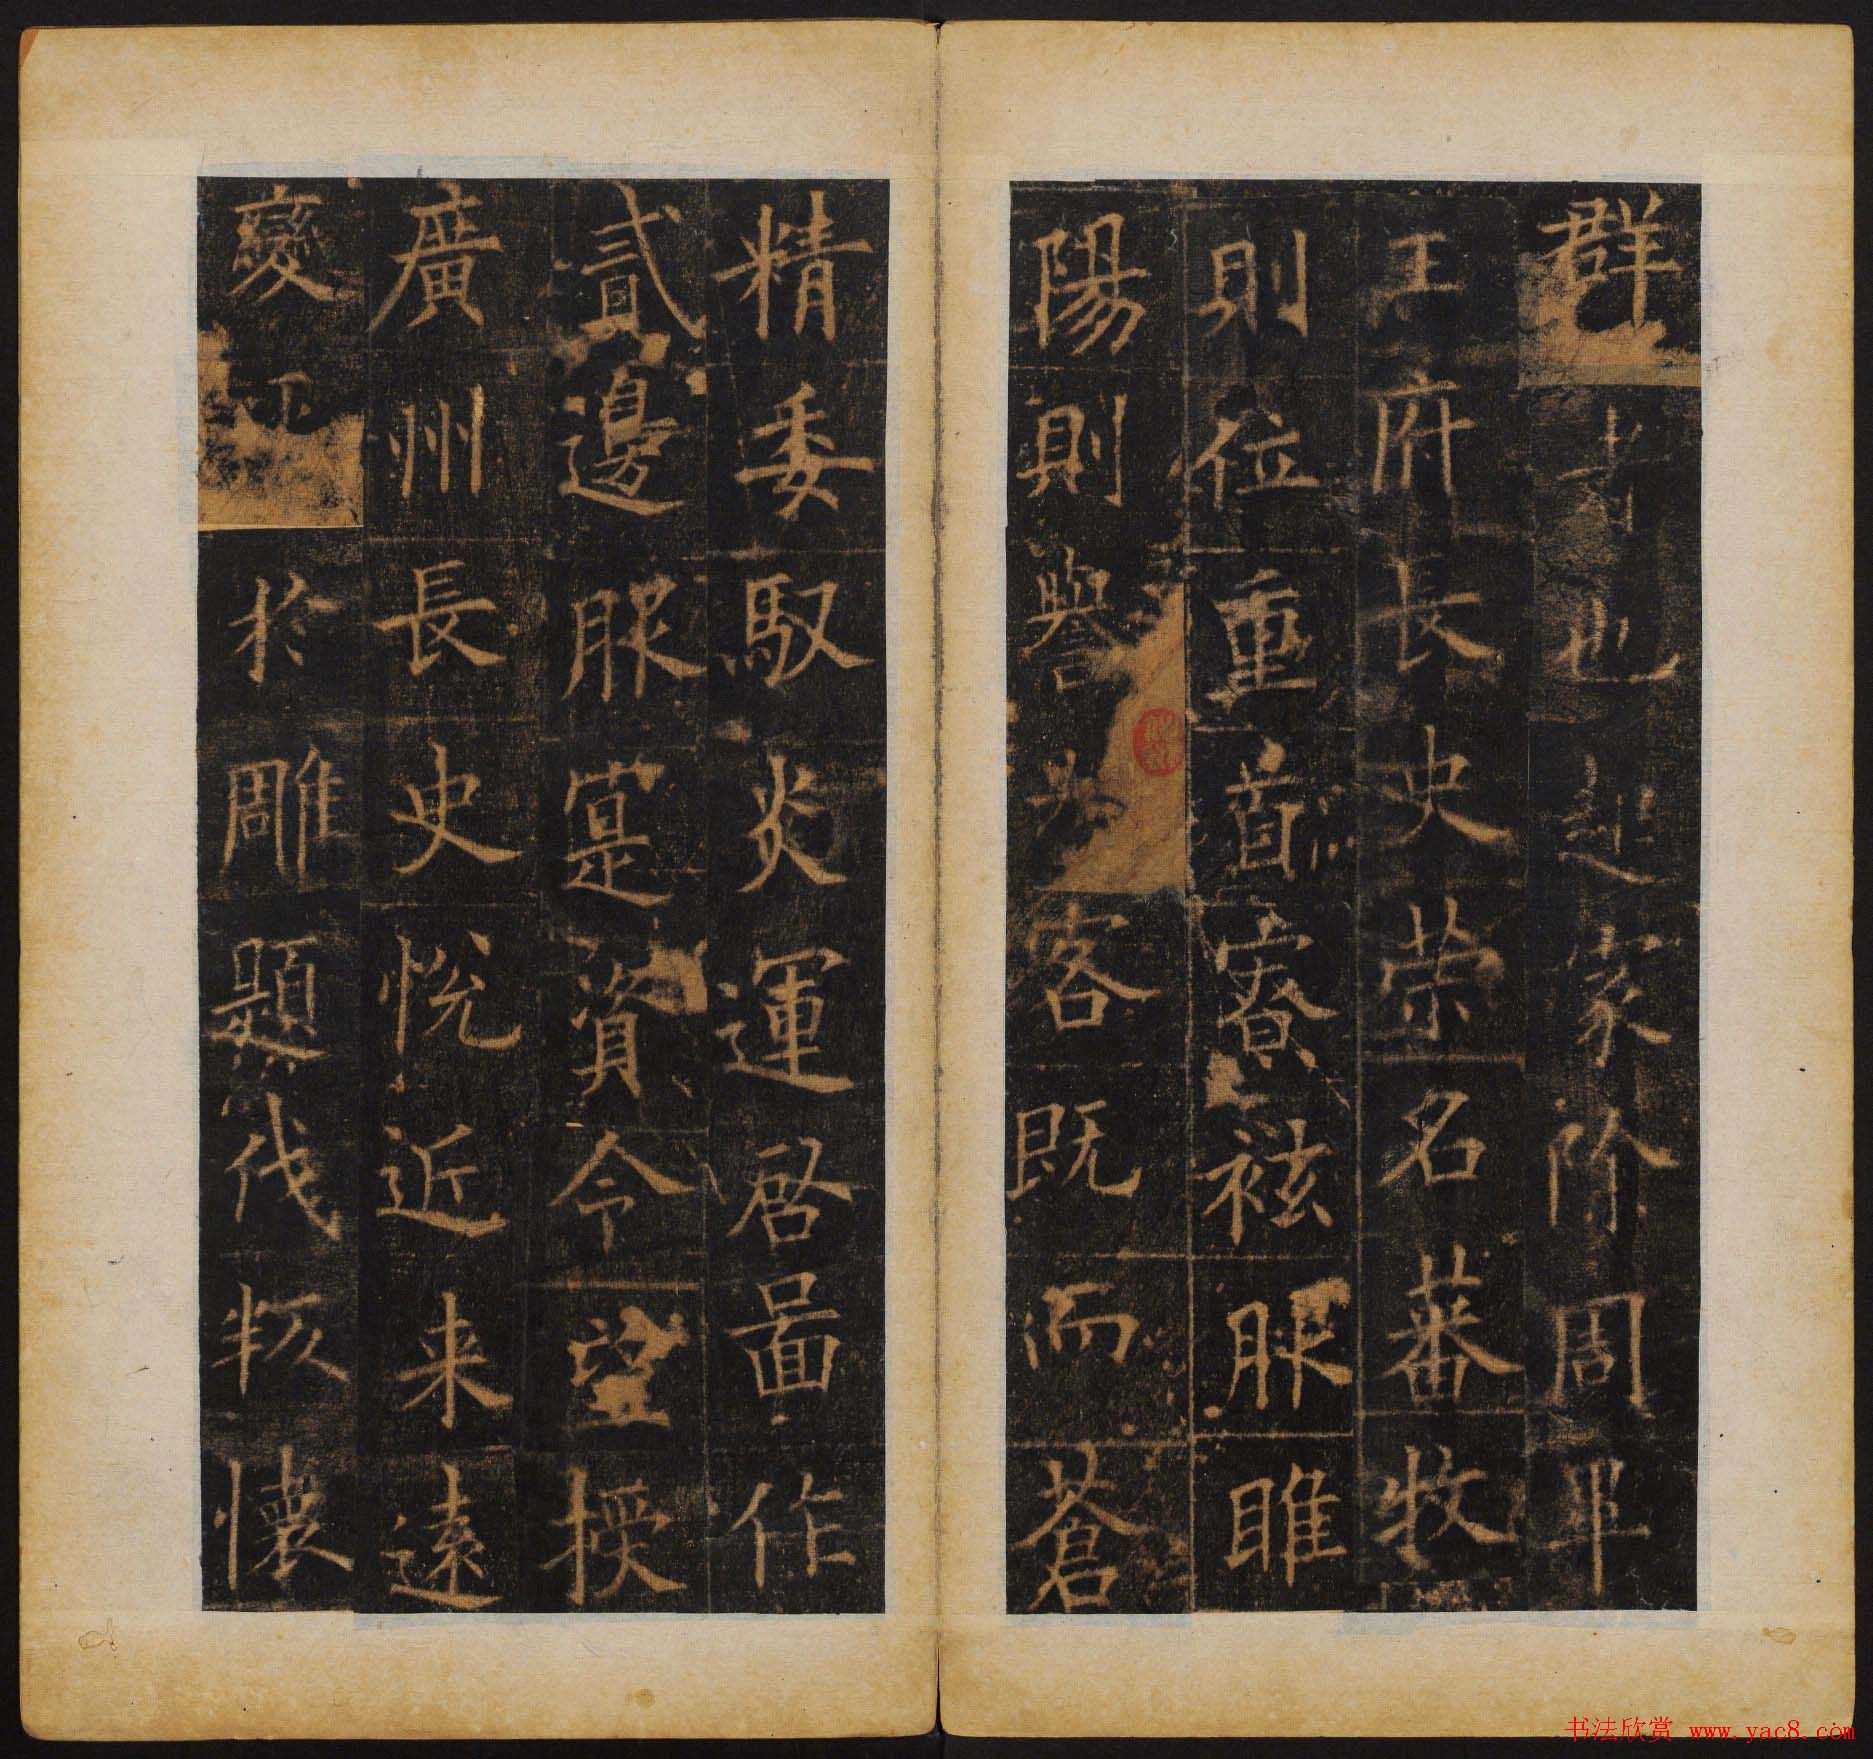 群也家除周平
王府長史榮名蕃牧
則位重首寮袨服睢
陽則譽客既而蒼
精委馭炎運启啚作
貳邊服寔資令望授
廣州長史悅近来遠
變於雕題伐叛懷
书法欣赏 www.yac8.com